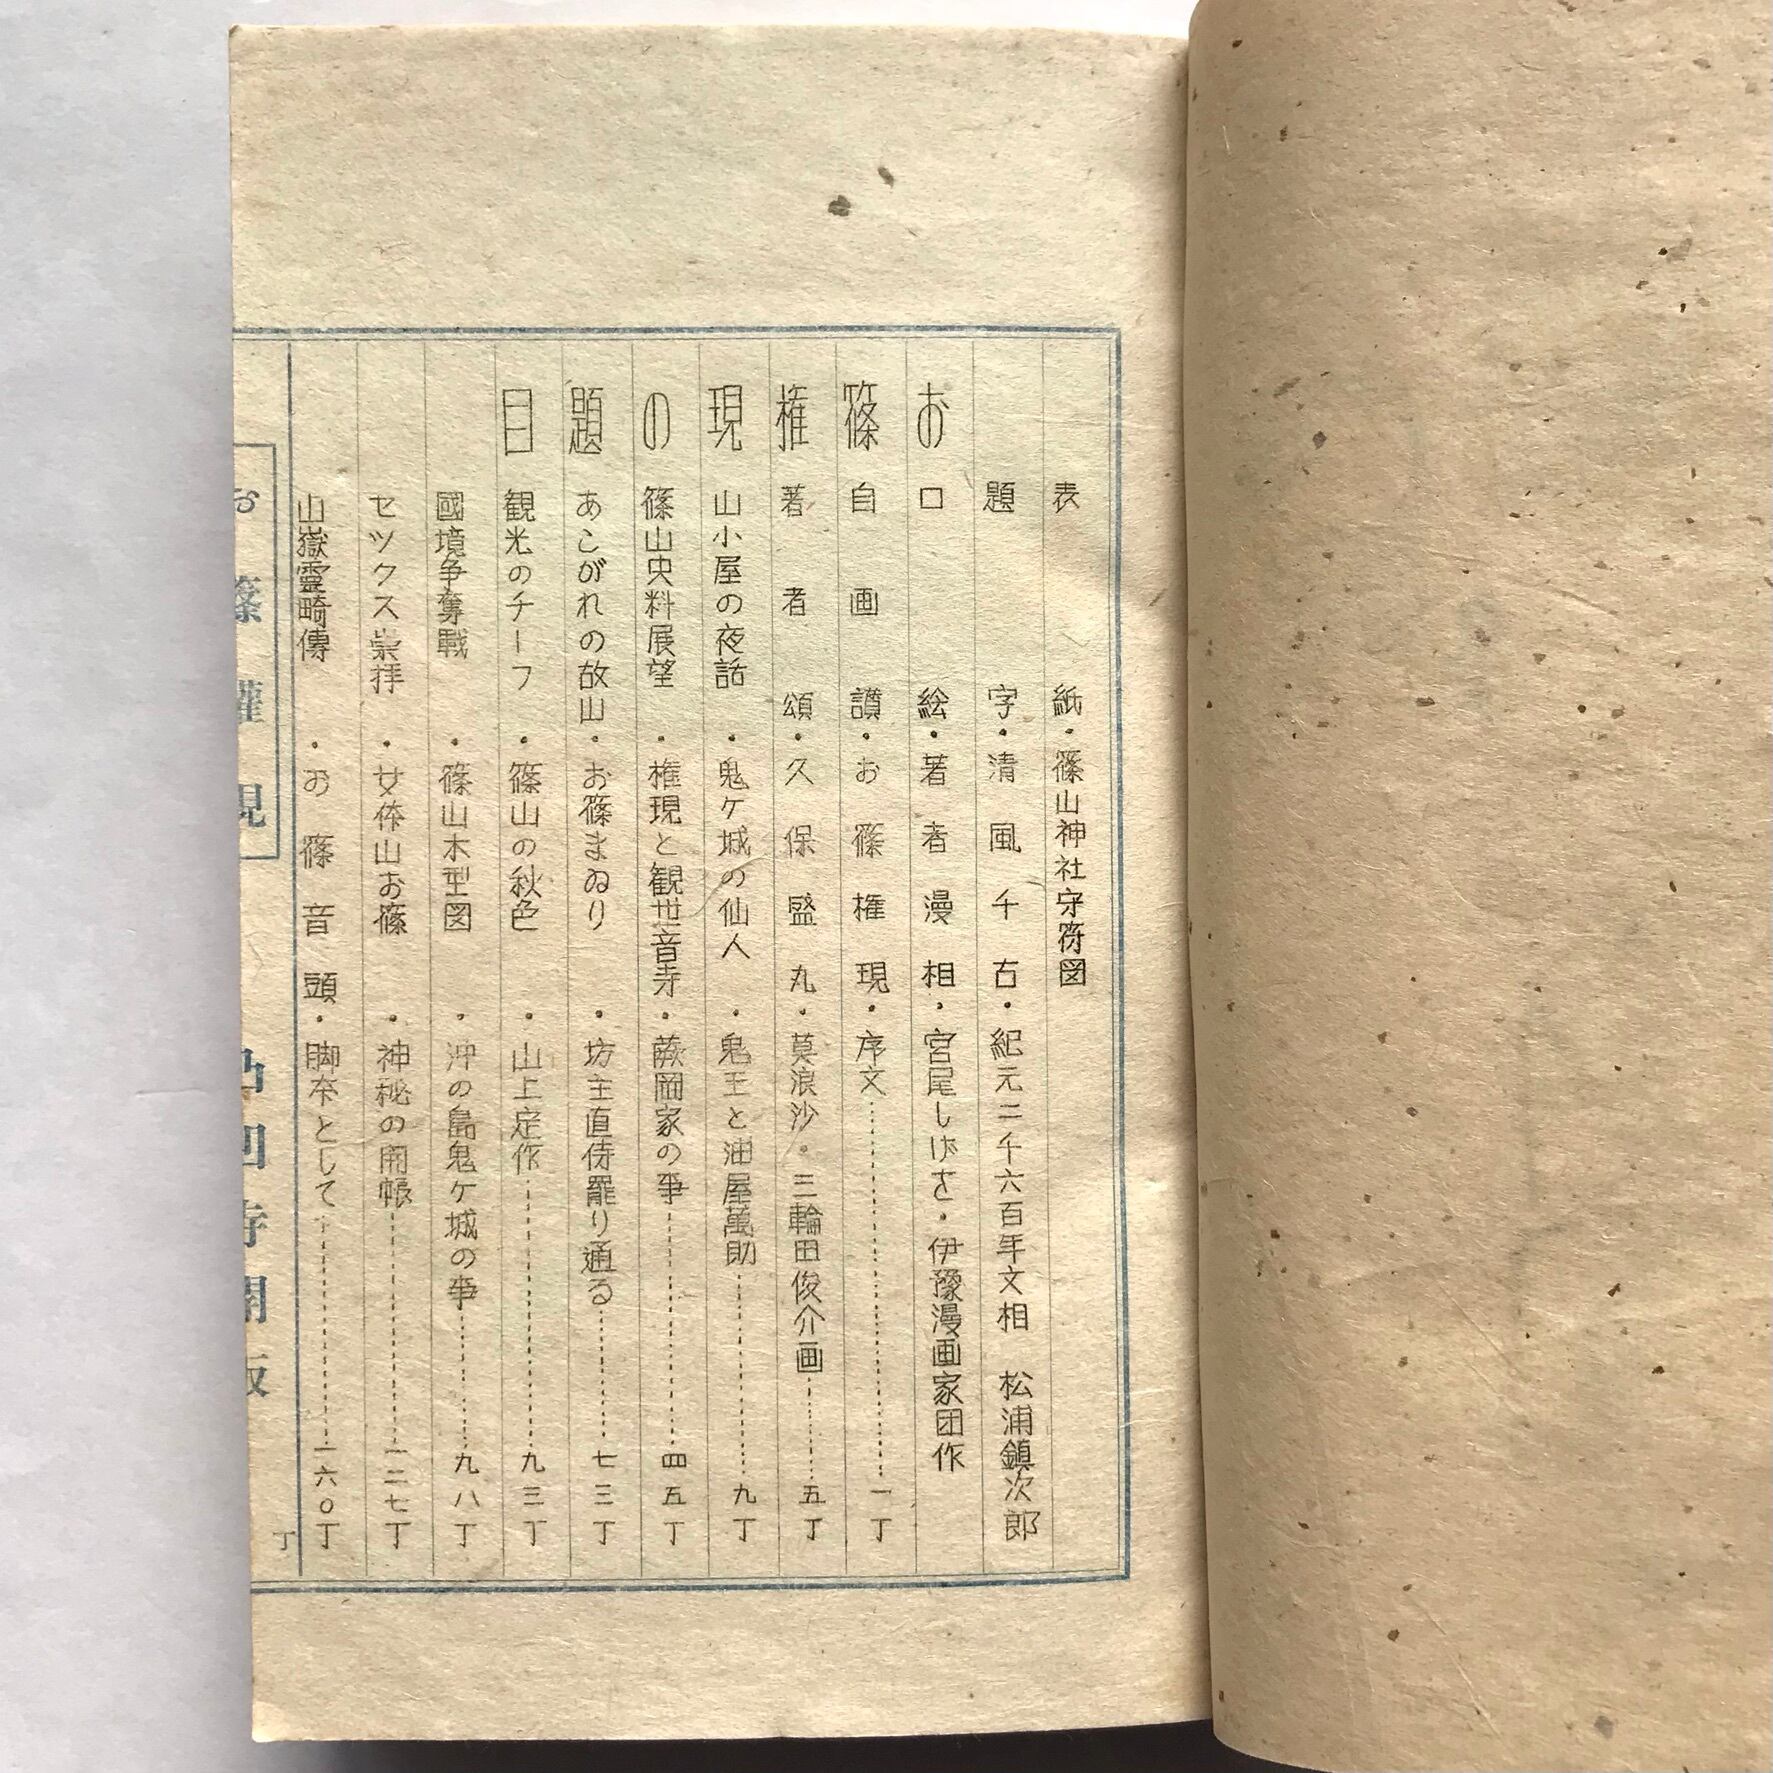 お篠権現の題目
表紙・篠山神社守符図
題字・清風千古・紀元二千六百年文相 松浦鎮次郎
口絵・著者漫相・宮尾しげを・伊豫漫画家団作
自画讃・お篠権現・序文…………一丁
著者頌・久保盛丸・莫浪沙・三輪田俊介画…………五丁
山小屋の夜話・鬼ケ城の仙人・鬼王と油屋萬助…………九丁
篠山史料展望・権現と観世音寺・蕨岡家の事…………四五丁
あこがれの故山・お篠まゐり・坊主直侍罷り通る…………七三丁
観光のチーフ・篠山の秋色・山上定作…………九三丁
國境争奪戰・篠山木型図・沖の島鬼ケ城の事…………九八丁
セツクス崇拝・女体山お篠・神秘の開帳…………一二七丁
山嶽霊畸傳・お篠音頭・脚本として…………一六〇丁
お篠権現 凸凹寺開版
丁